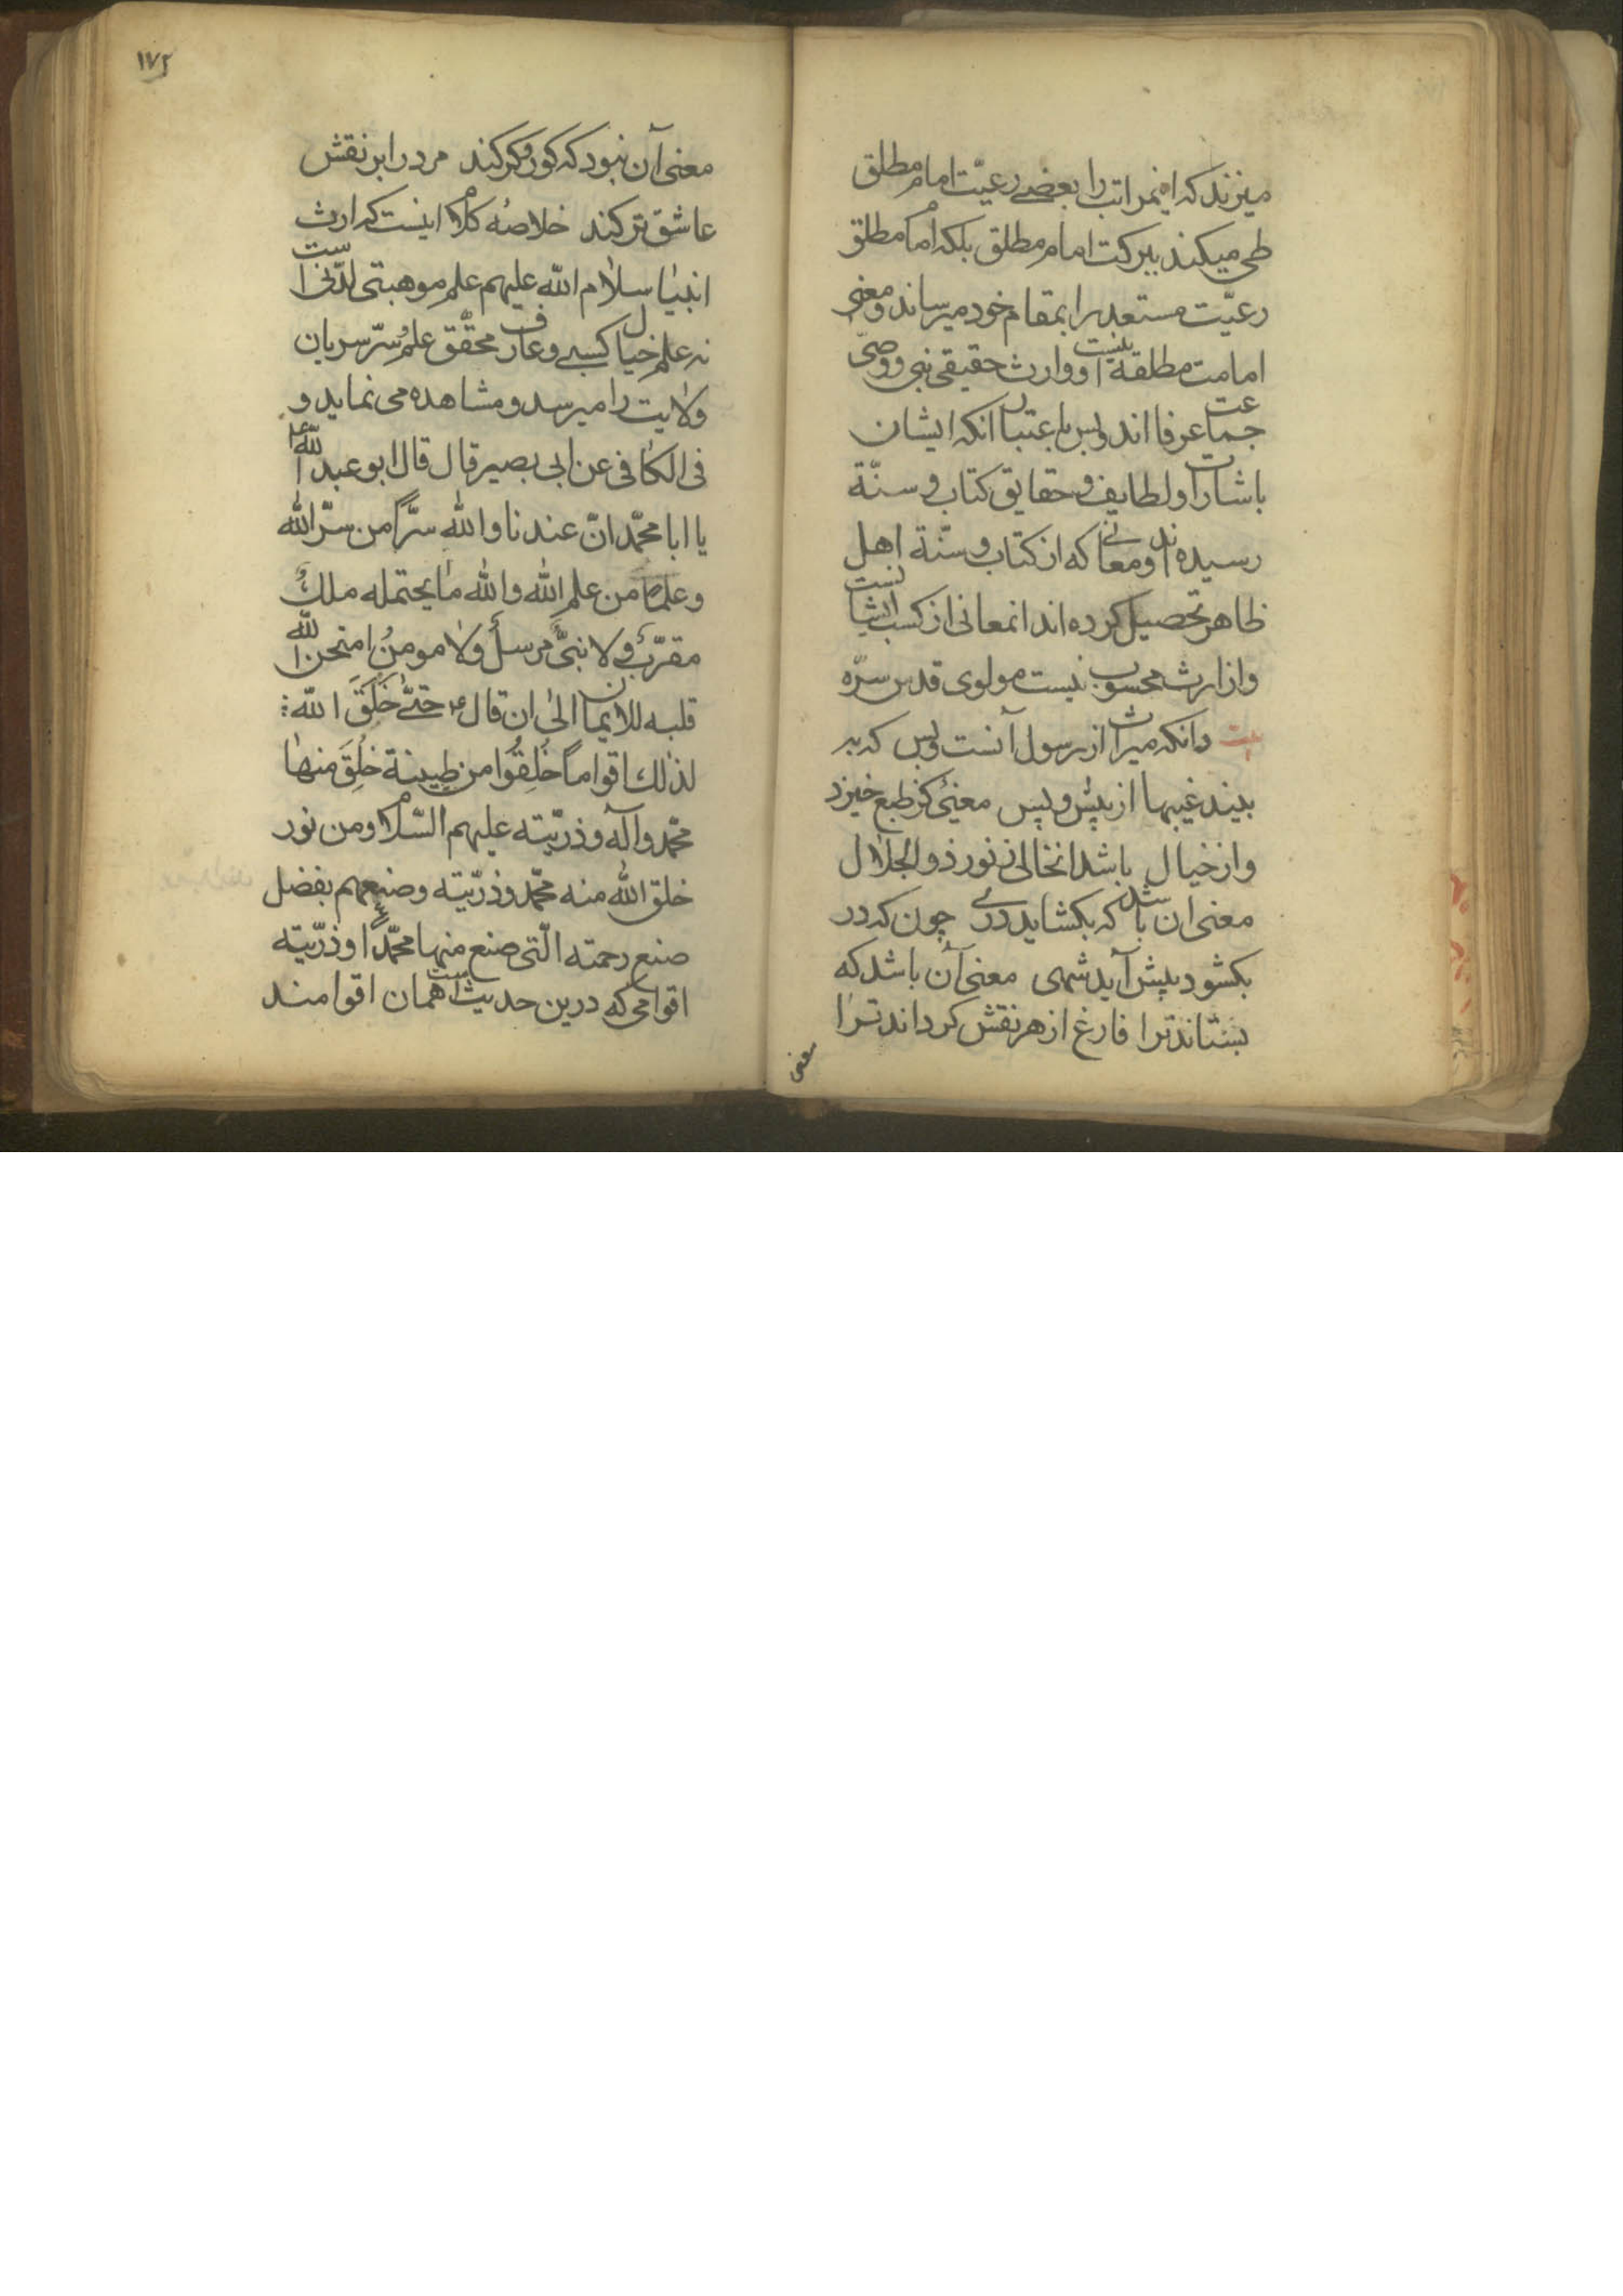 میزنند که اینمراتب را بعضی رعیّت امام مطلق
طی میکند ببرکت امام مطلق بلکه امام مطلق
رعیّت مستعد را بمقام خود میرساند و معنی
امامت مطلقه اینست و وارث حقیقی نبی و وصیّ
جماعت عرفا اند و بس باعتبار انکه ایشان
باشارات و لطایف و حقایق کتاب و سنّة
رسیده اند و معانی که از کتاب و سنّة اهل
ظاهر تحصیل کرده اند انمعانی از کسب ایشانست
و از ارث محسوب نیست مولوی قدس سرّه
بیت دانکه میراث از رسول آنست و بس که به
بیند غیبها از پیش و پس معنئ کز طبع خیزد
و از خیال باشد انخالی ز نور ذو الجلال
معنی ان باشد که بکشاید دری چون که در
بکشود پیش آید شهی معنی آن باشد که
بستاند ترا فارغ از هر نقش کرداند ترا
معنی
١٧٢
معنی آن نبود که کور و کر کند مرد را بر نقش
عاشق تر کند خلاصهٔ کلام اینست که ارث
انبیا سلام الله علیهم علم موهبتی لدنّی است
نه علم خیال کسبی و عارف محقّق علم سرّ سریان
ولایت را میرسد و مشاهده می نماید و
فی الکافی عن ابی بصیر قال قال ابو عبد الله ع
یا ابا محمّد انّ عندنا والله سرّاً من سرّ الله
و علماً من علم الله والله ما یحتمله ملكٌ
مقرّبٌ و لا نبیٌّ مرسلٌ ولا مومنٌ امتحن الله
قلبه للایمان الی ان قال ع حتّی خَلَقَ الله
لذلك اقواماً خُلِقُوا من طیینة خُلِقَ منها
محمّد وآله و ذرّیّته علیهم السّلام ومن نور
خلق الله منه محمّد و ذرّیّته وصنعهم بفضل
صنع رحمته الّتی صنع منها محمّداً و ذرّیّته
اقوامی که درین حدیث است همان اقوامند